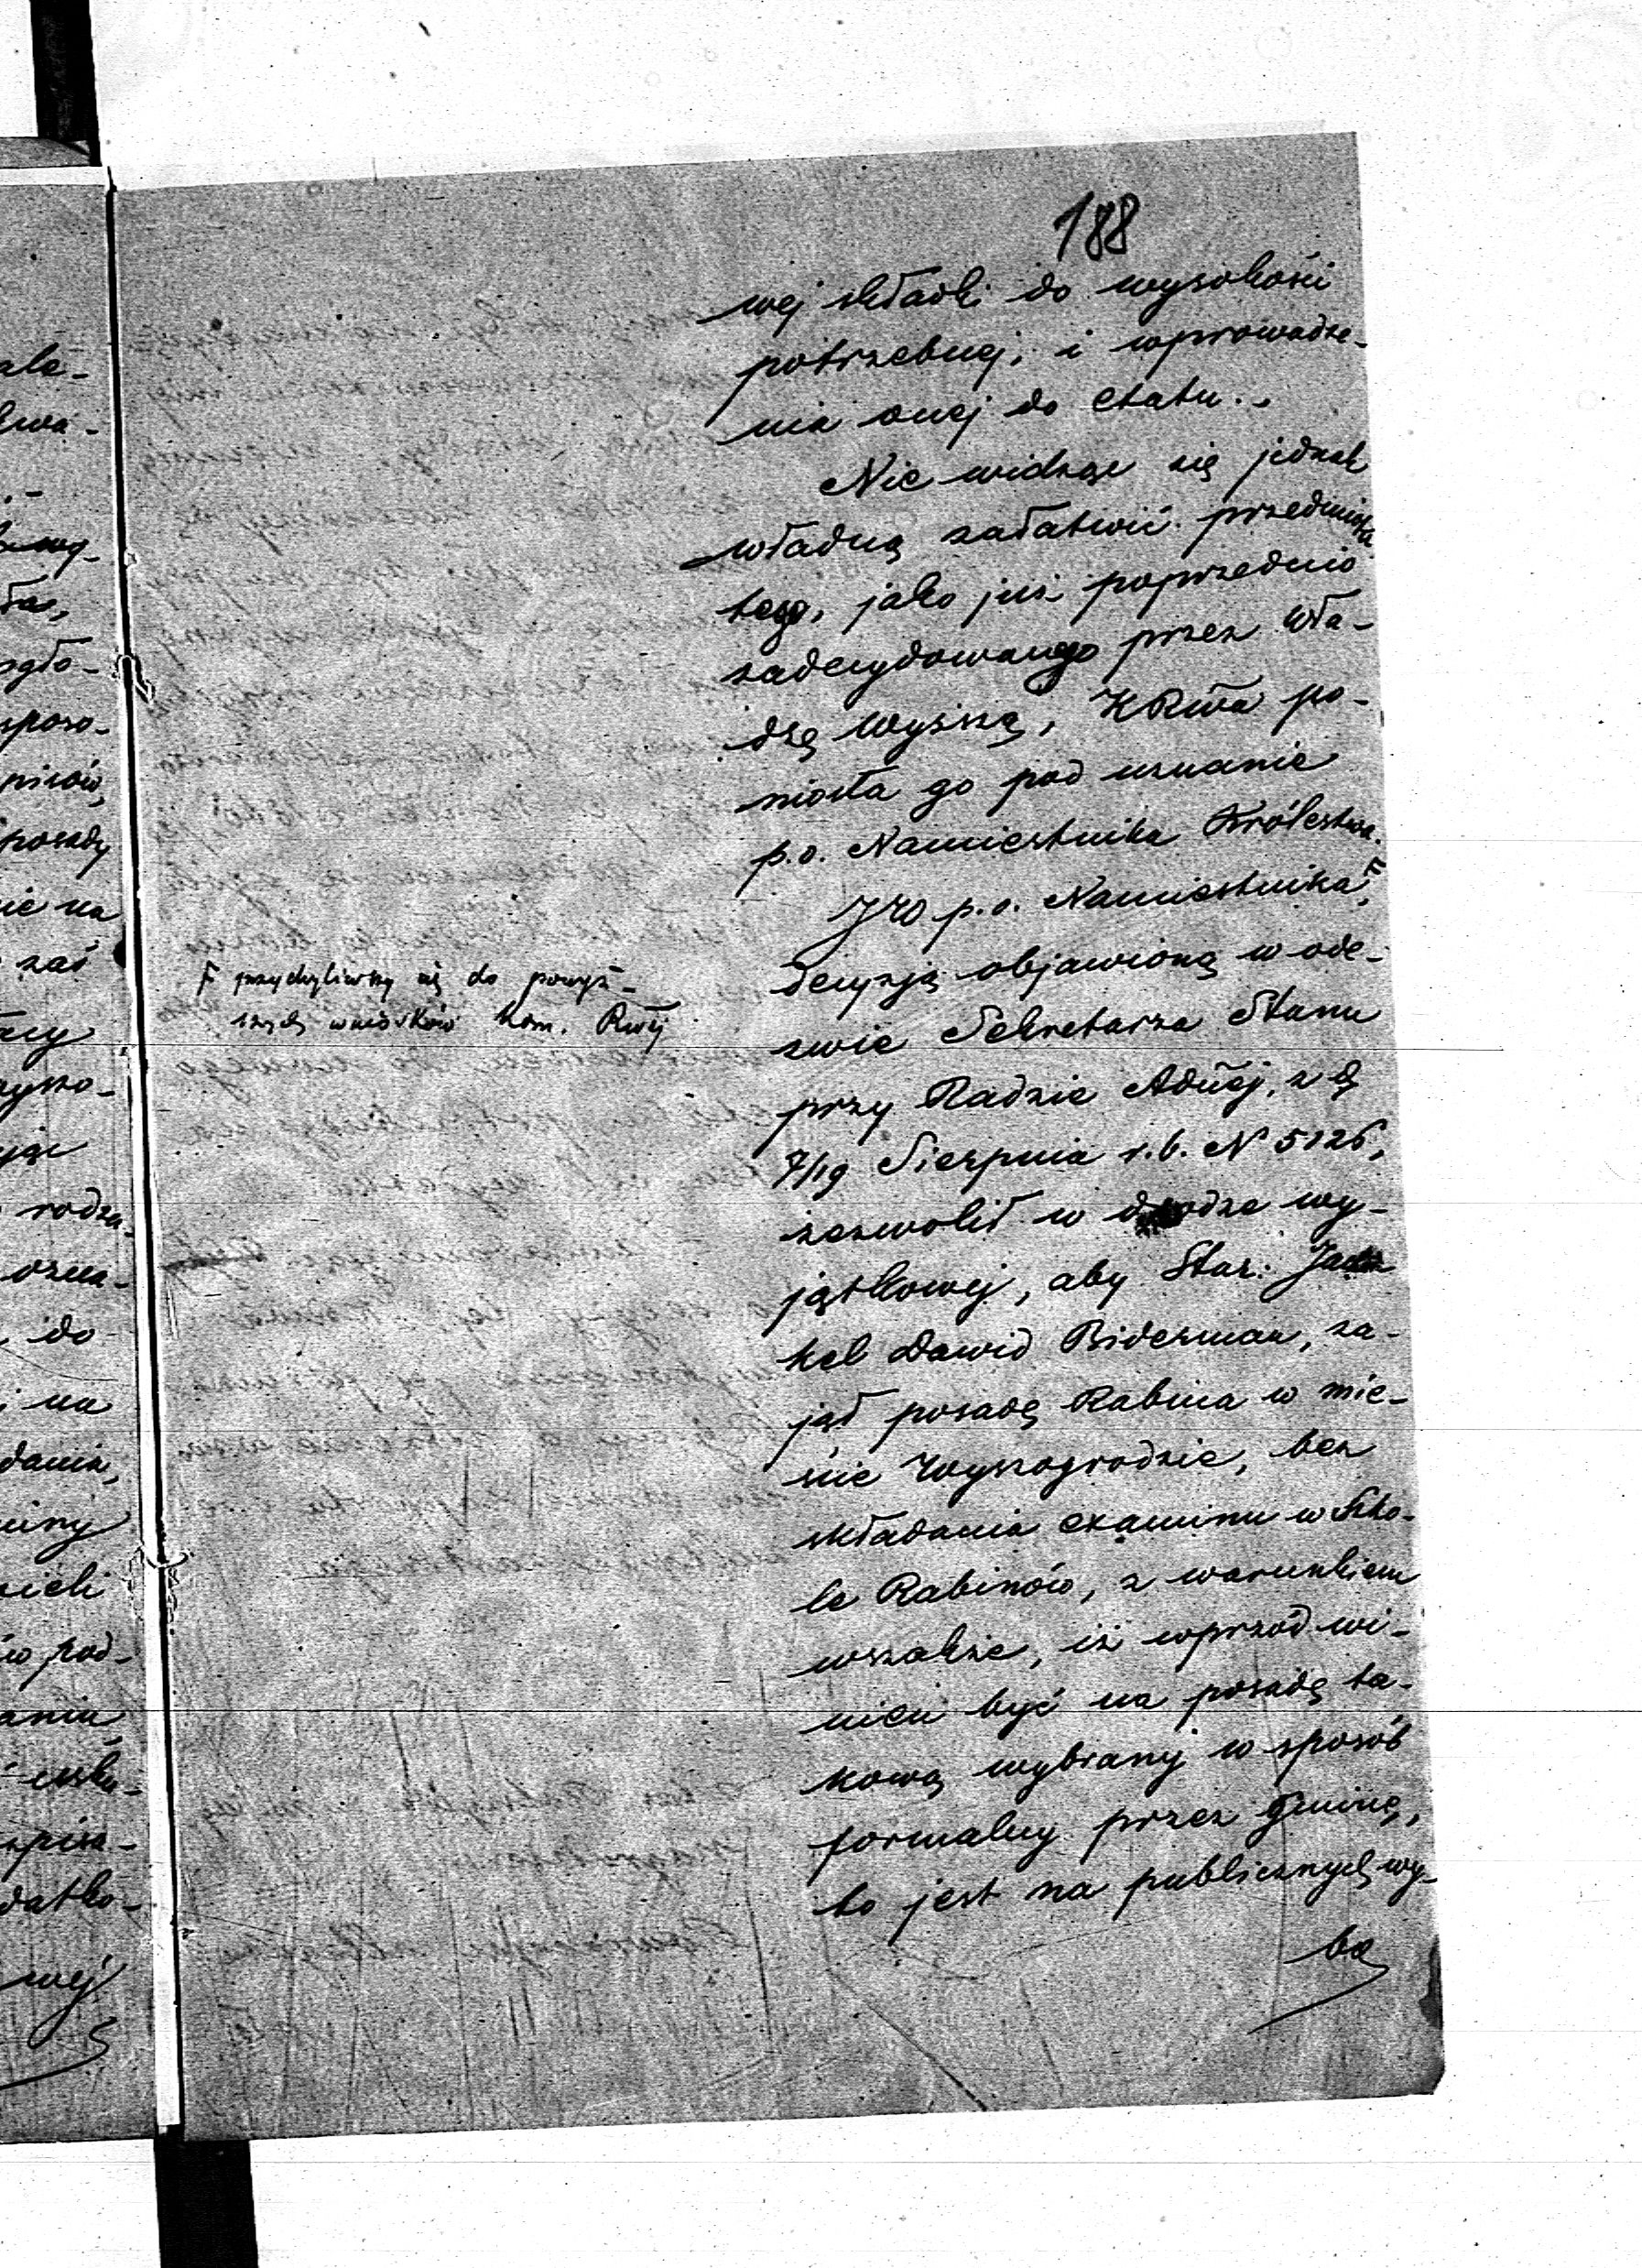 188
wej składki do wysokości
potrzebnej, i wprowadze-
nia onej do etatu.
Nie widząc się jednak
władną załatwić przedmiotu
tego, jako już poprzednio
zadecydowanego przez Wła-
dzę Wyższą, KRwa po-
niosła go pod uznanie
p.o. Namiestnika Królestwa.
JW p.o. Namiestnika F,
decyzją objawioną w ode-
zwie Sekretarza Stanu
przy Radzie Adnej, z d
7/19 Sierpnia r.b. N 5126,
zezwolił w drodze wy-
jątkowej, aby Star:
kel Dawid Biderman, za-
jął posadę Rabina w mie-
ście Wyszogrodzie, bez
składania examinu w Szko-
le Rabinów, z warunkiem
wszakże, iż wprzód wi-
nien być na posadę ta-
kową wybrany w sposób
formalny przez Gminę,
to jest na publicznych wy-
bo
F przychyliwszy się do powyż-
szych wniosków Kom. Rwej
ale-
wa-
łas,
ogło-
sposo-
posady
nie na
zaś
rodza-
ozna-
do
i na
dania,
miny
ieli
w pod-
aniu
spisa-
datko-
wej